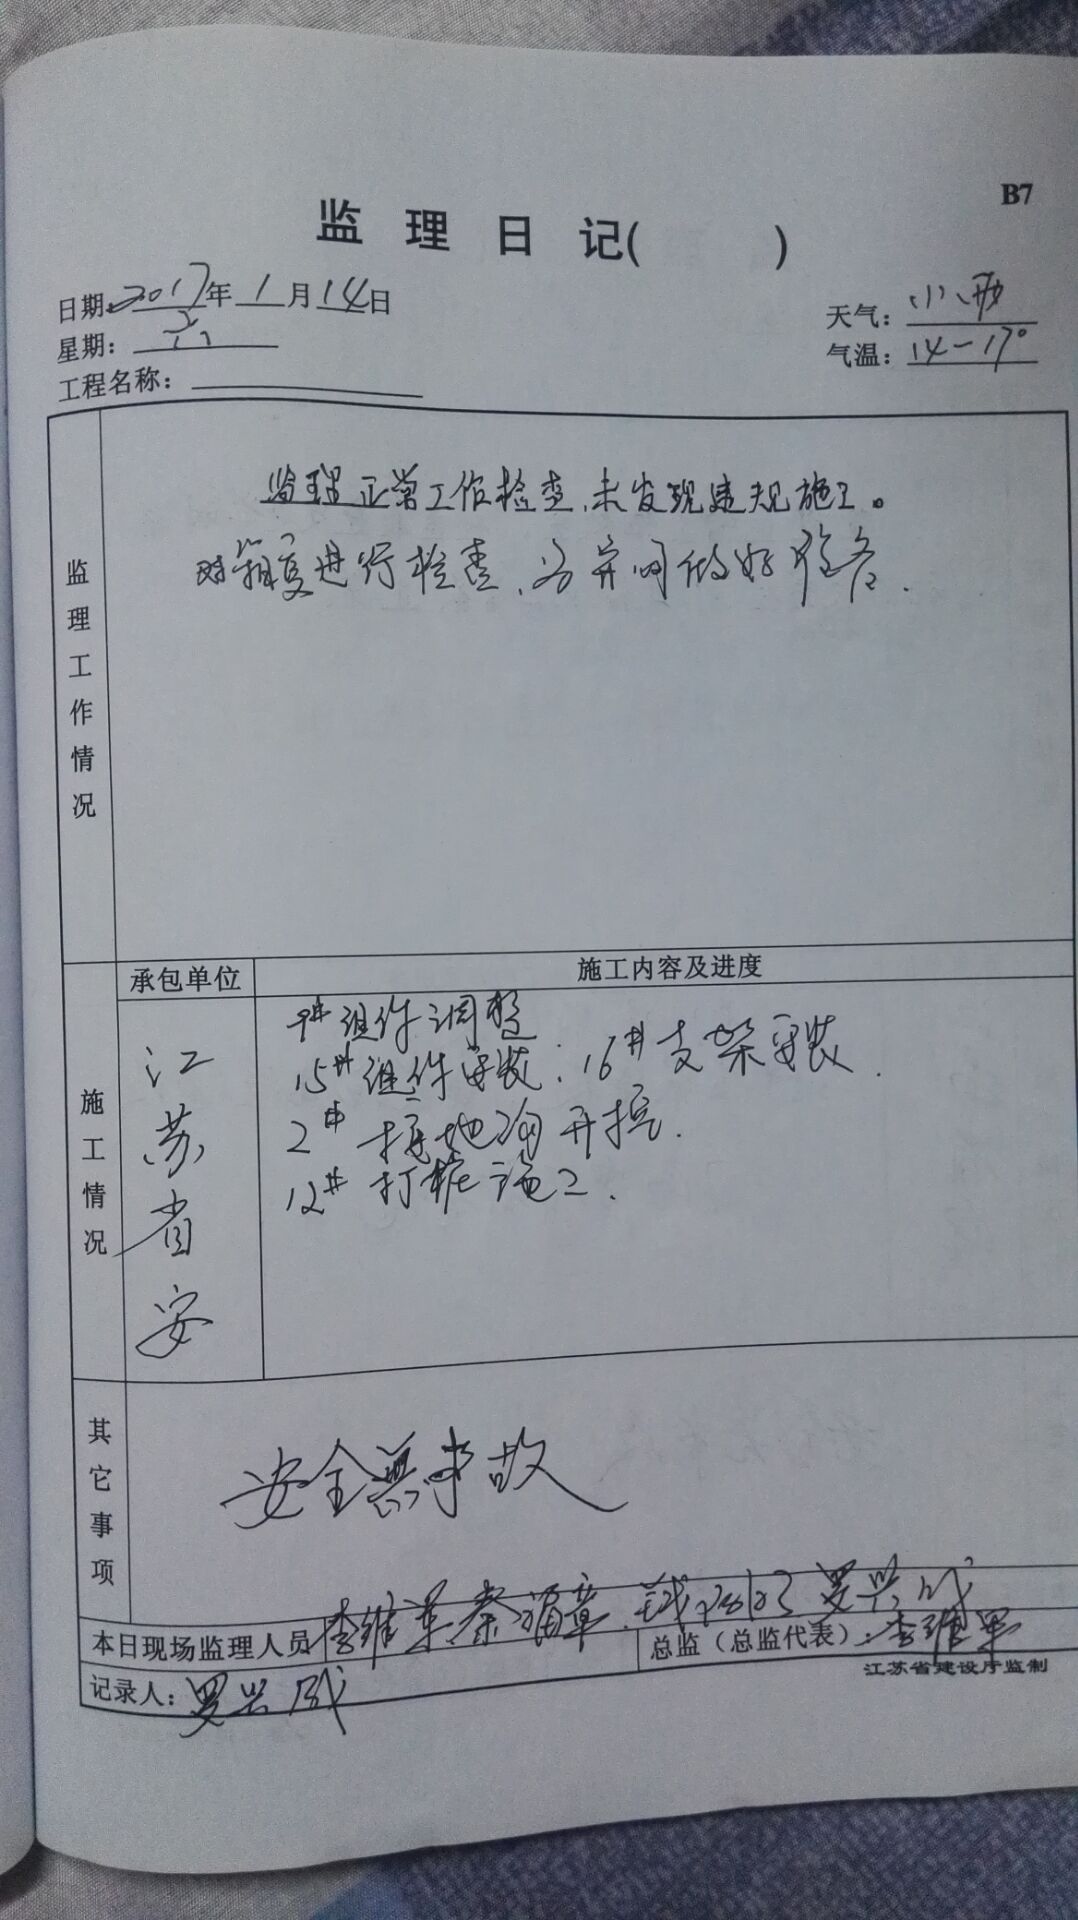 B7
监理日记(   )
日期:2017年1月14日
天气:小雨
星期:六
气温:14-17°
工程名称:
监理工作情况
监理正常工作检查,未发现违规施工。
进行检查,为并网做好准备.
承包单位
施工内容及进度
施工情况
江苏省安
9#组件调整
15#组件安装;16#支架安装.
2#接地沟开挖.
12#打桩施工.
其它事项
安全無事故
本日现场监理人员
李维军 秦福章 罗兴成
总监(总监代表):李维军
记录人:罗兴成
江苏省建设厅监制